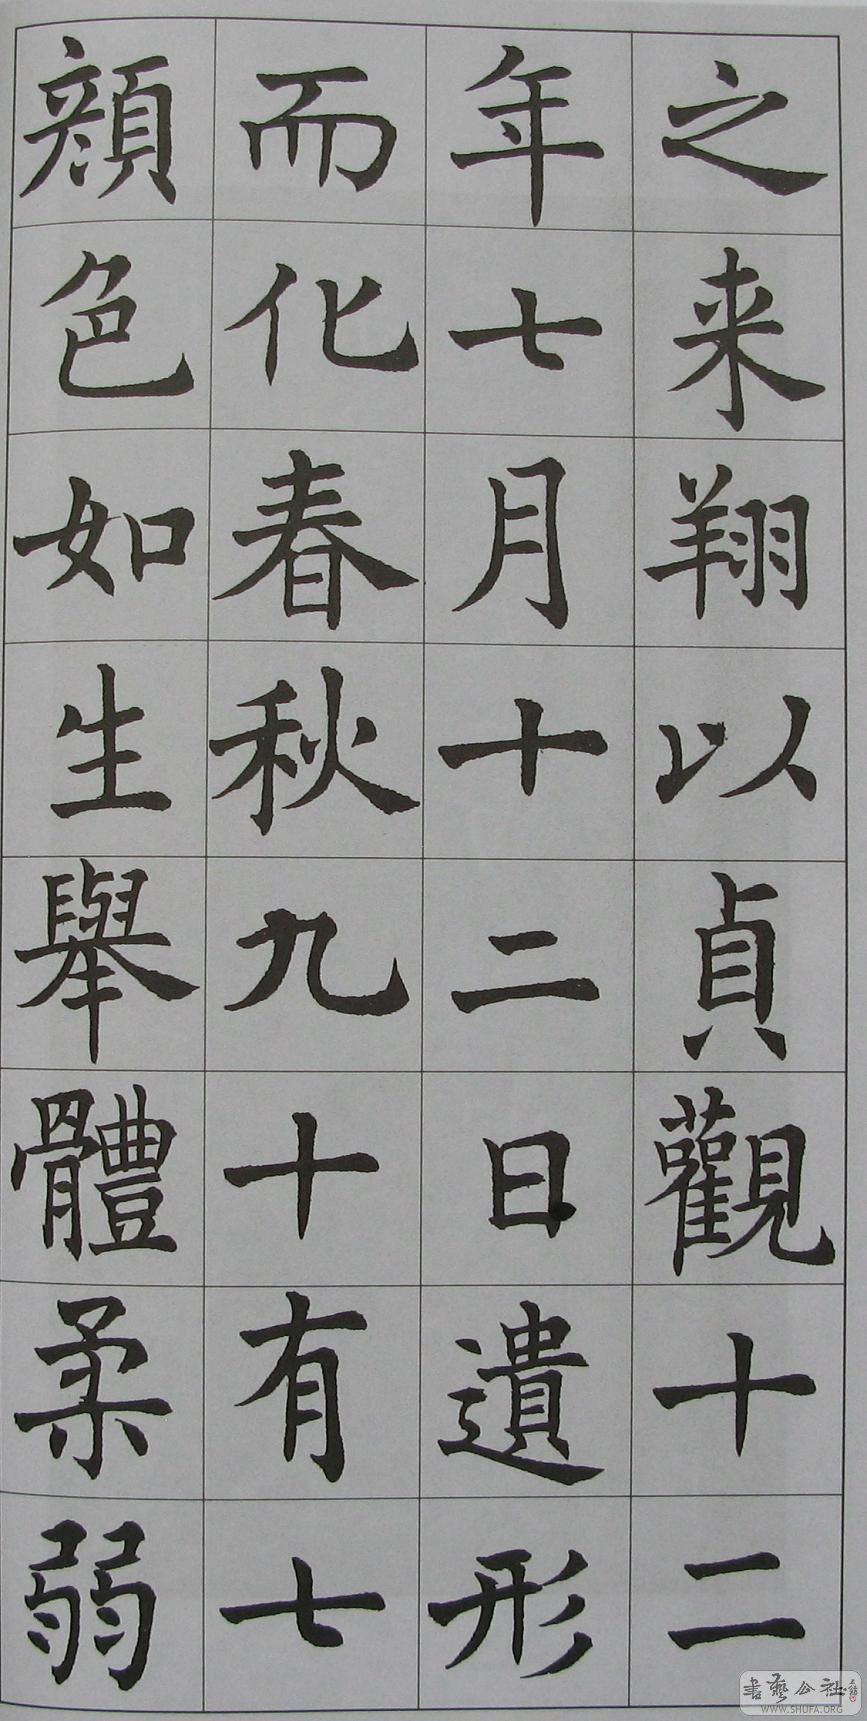 之来翔以貞觀十二
年七月十二日遺形
而化春秋九十有七
顔色如生舉體柔弱
書藝公社
WWW.SHUFA.ORG